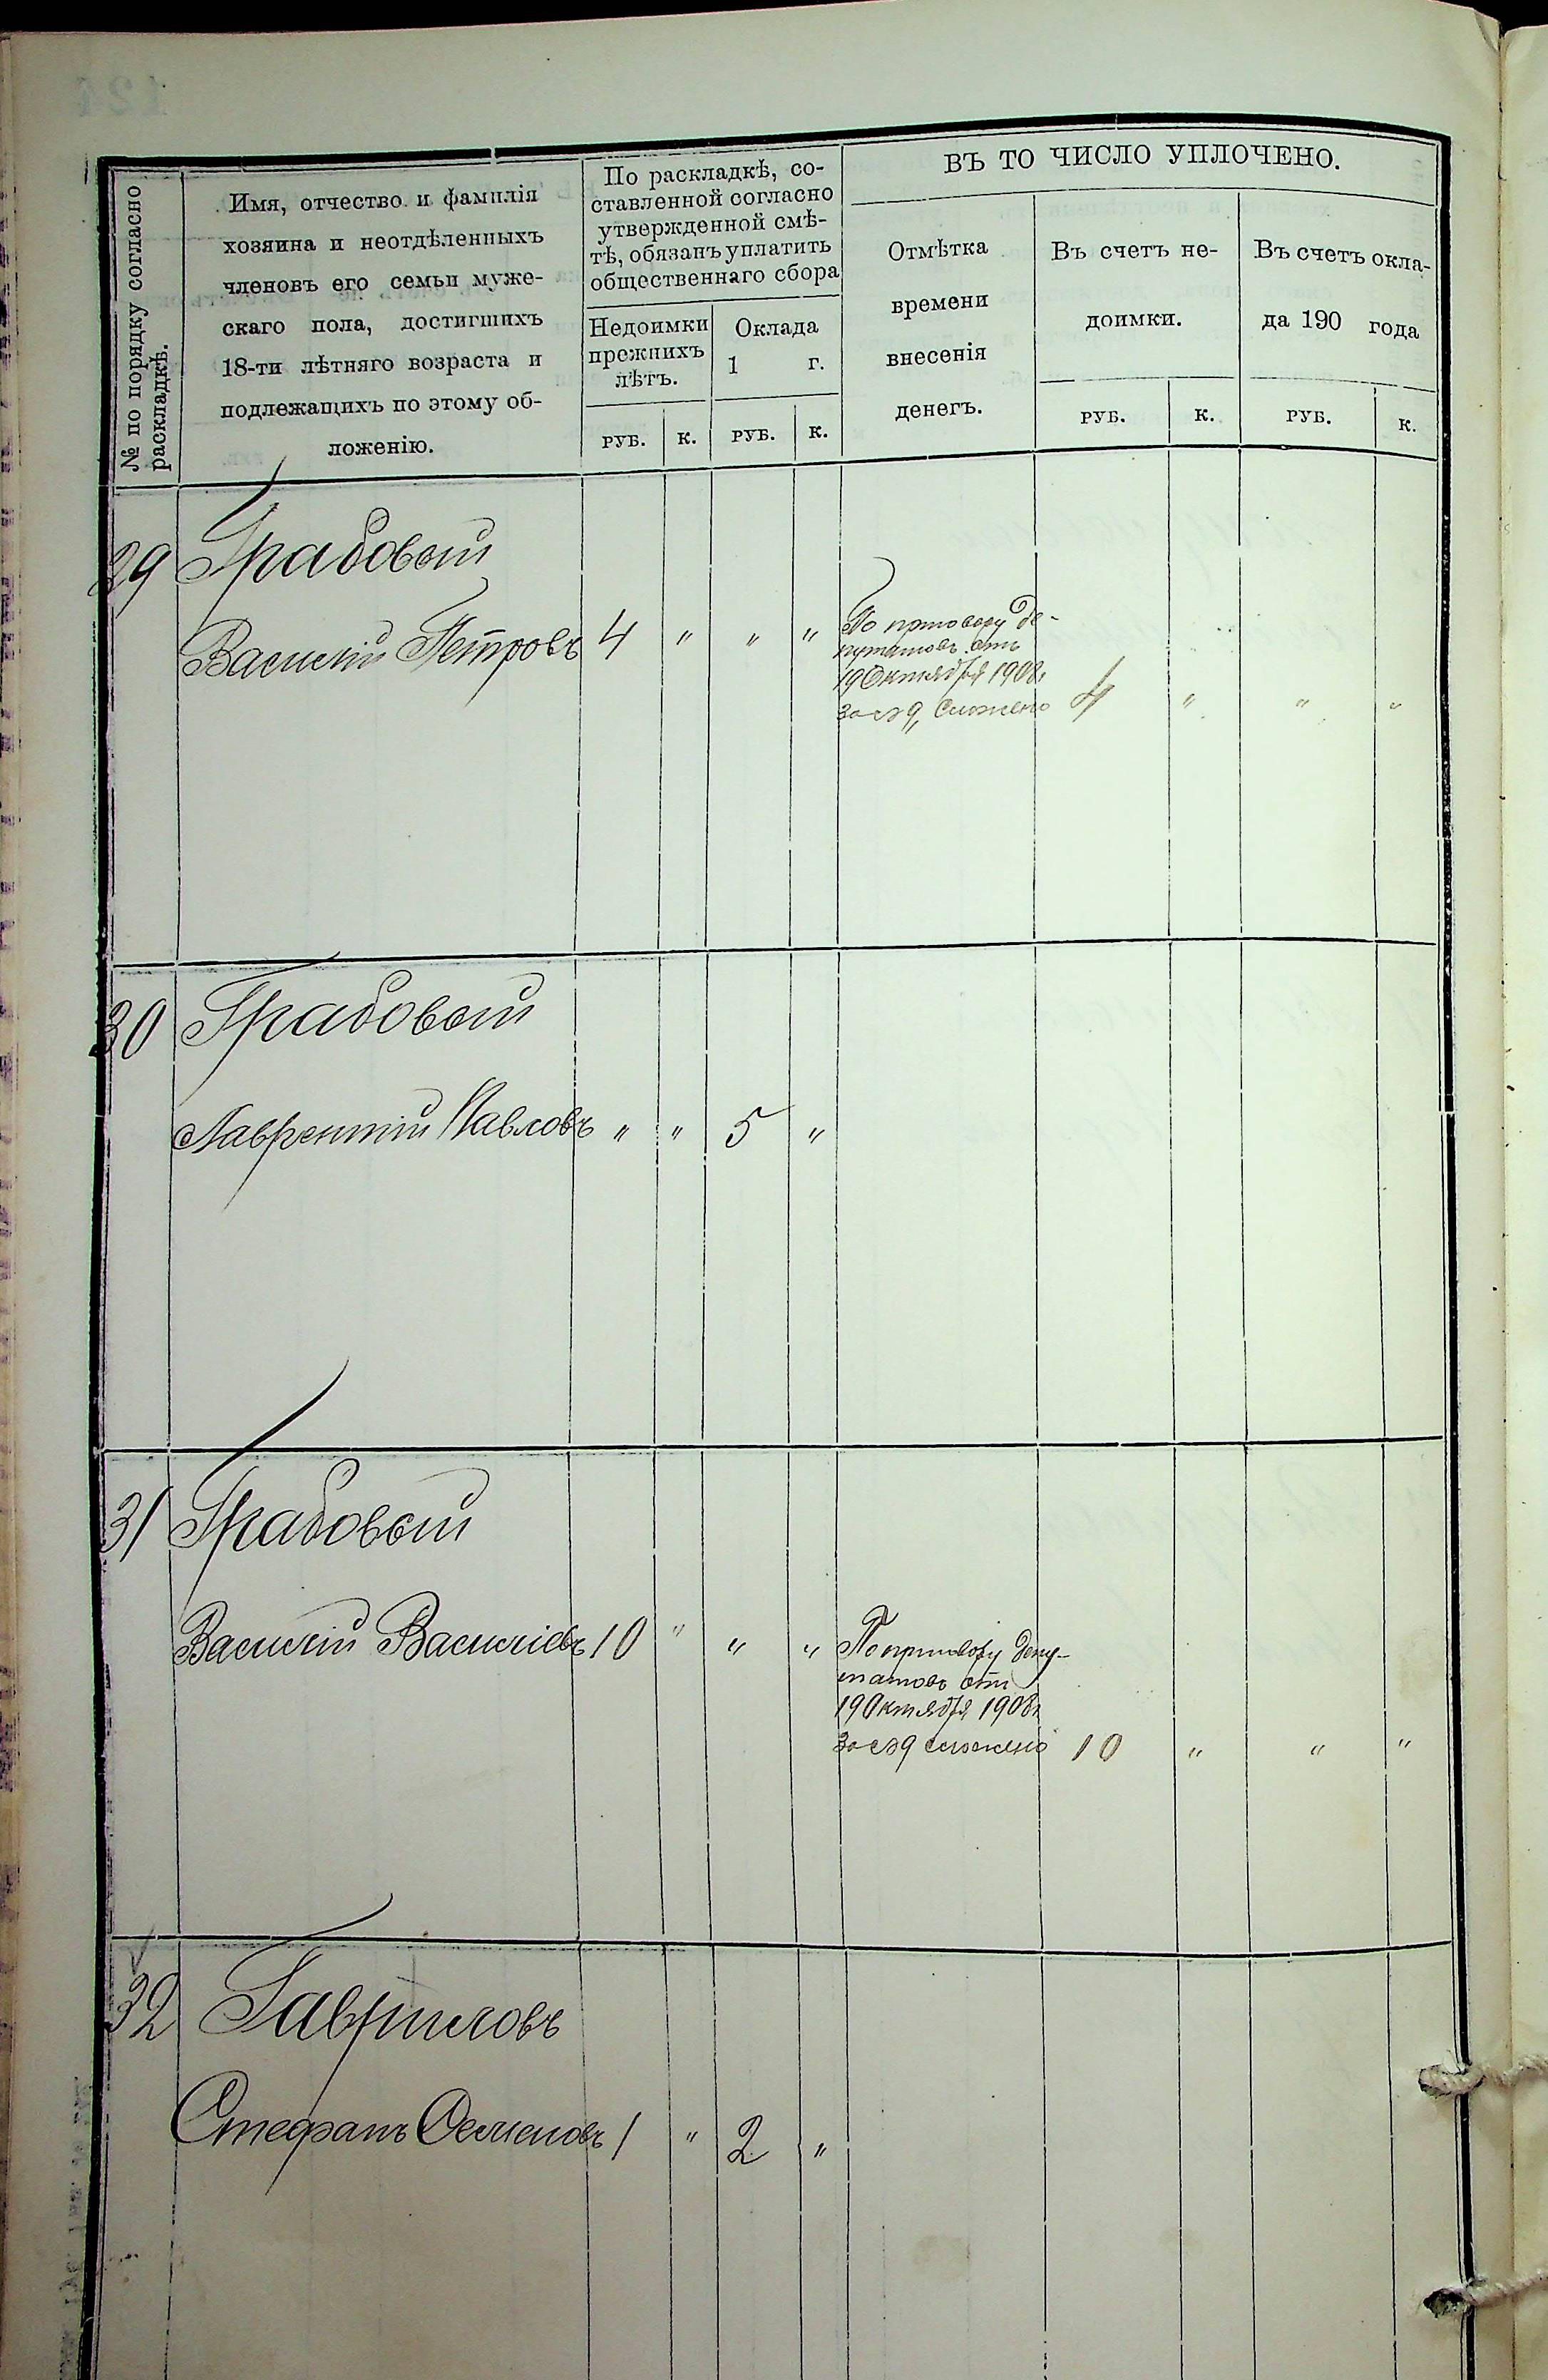 ВЪ ТО ЧИСЛО УПЛОЧЕНО.
№ по порядку согласно
раскладкѣ.
Имя, отчество и фамилія
хозяина и неотдѣленныхъ
членовъ его семьи муже-
скаго пола, достигшихъ
18-ти лѣтняго возраста и
подлежащихъ по этому об-
ложенію.
По раскладкѣ, со-
ставленной согласно
утвержденной смѣ-
тѣ, обязанъ уплатить
общественнаго сбора
Недоимки
прежнихъ
лѣтъ.
Оклада
1 г.
РУБ. К. РУБ. К.
Отмѣтка
времени
внесенія
денегъ.
Въ счетъ не-
доимки.
РУБ. К.
Въ счетъ окла-
да 190 года
РУБ. К.
29 Грабовый
Василій Петровъ 4 " " "
По приговору де-
путатовъ отъ
19 Октября 1908 г.
за № 9, сложено 4 " " "
30 Грабовый
Лаврентій Павловъ " " 5 "
31 Грабовый
Василій Василіевъ 10 " " "
По приговору депу-
татовъ отъ
19 Октября 1908 г.
за № 9 сложено 10 " " "
32 Гавриловъ
Стефанъ Семеновъ 1 " 2 "